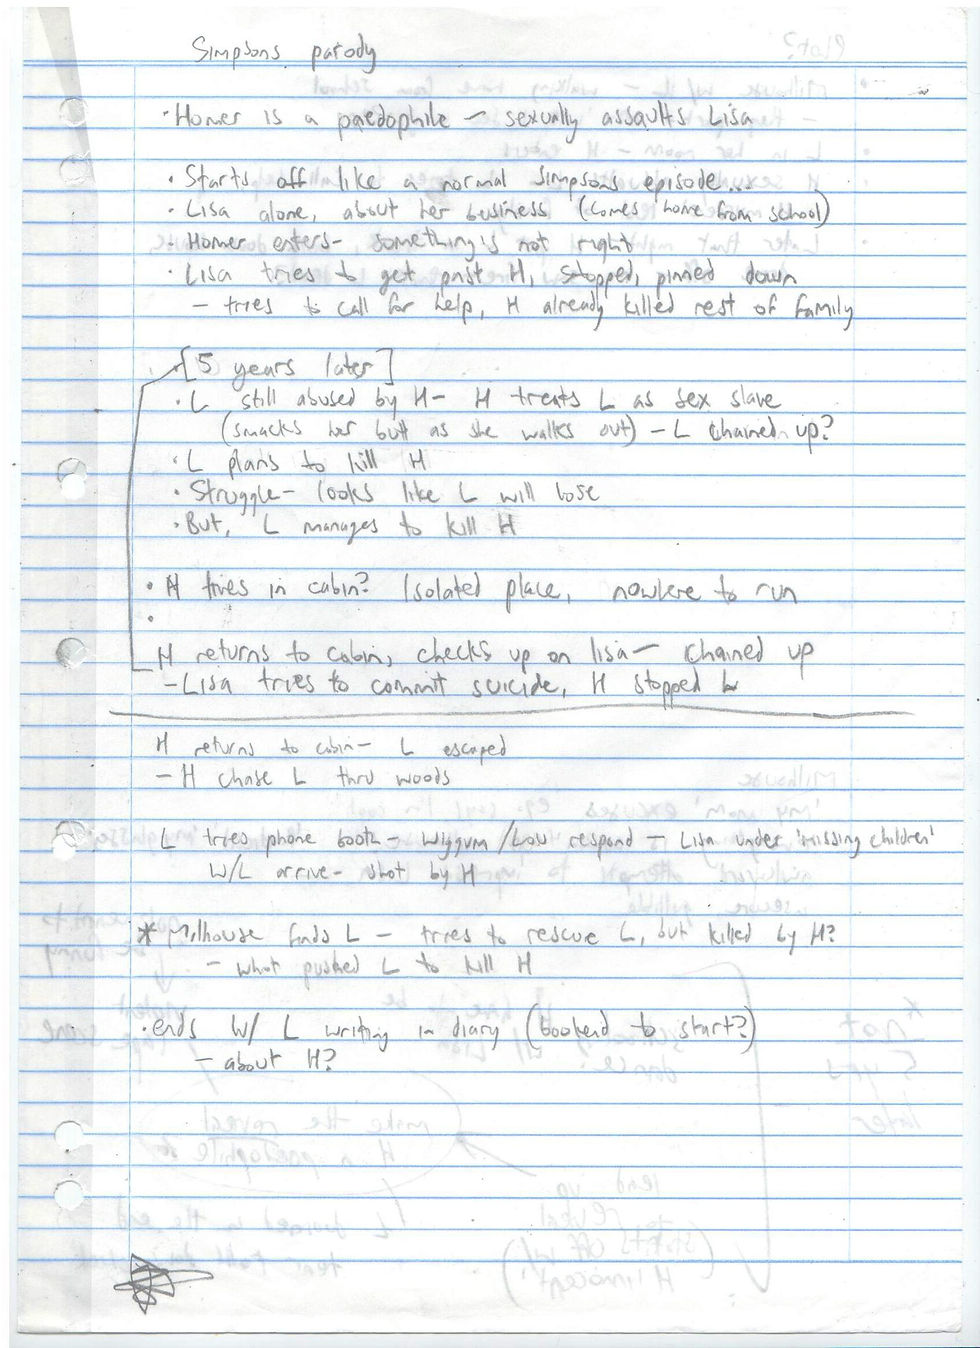 Simpsons parody
· Homer is a paedophile – sexually assaults Lisa
· Starts off like a normal Simpsons episode...
· Lisa alone, about her business (comes home from school)
· Homer enters – something's not right
· Lisa tries to get past H, stopped, pinned down
– tries to call for help, H already killed rest of family
[5 years later]
· L still abused by H – H treats L as sex slave
(smacks her butt as she walks out) – L chained up?
· L plans to kill H
· Struggle – looks like L will lose
· But, L manages to kill H
· H lives in cabin? Isolated place, nowhere to run
·
H returns to cabin, checks up on lisa – chained up
– Lisa tries to commit suicide, H stopped L
H returns to cabin – L escaped
– H chase L thru woods
L tries phone booth – Wiggum/Lou respond – Lisa under 'missing children'
W/L arrive – shot by H
* Milhouse finds L – tries to rescue L, but killed by H?
– what pushed L to kill H
· ends w/ L writing in diary (bookend to start?)
– about H?